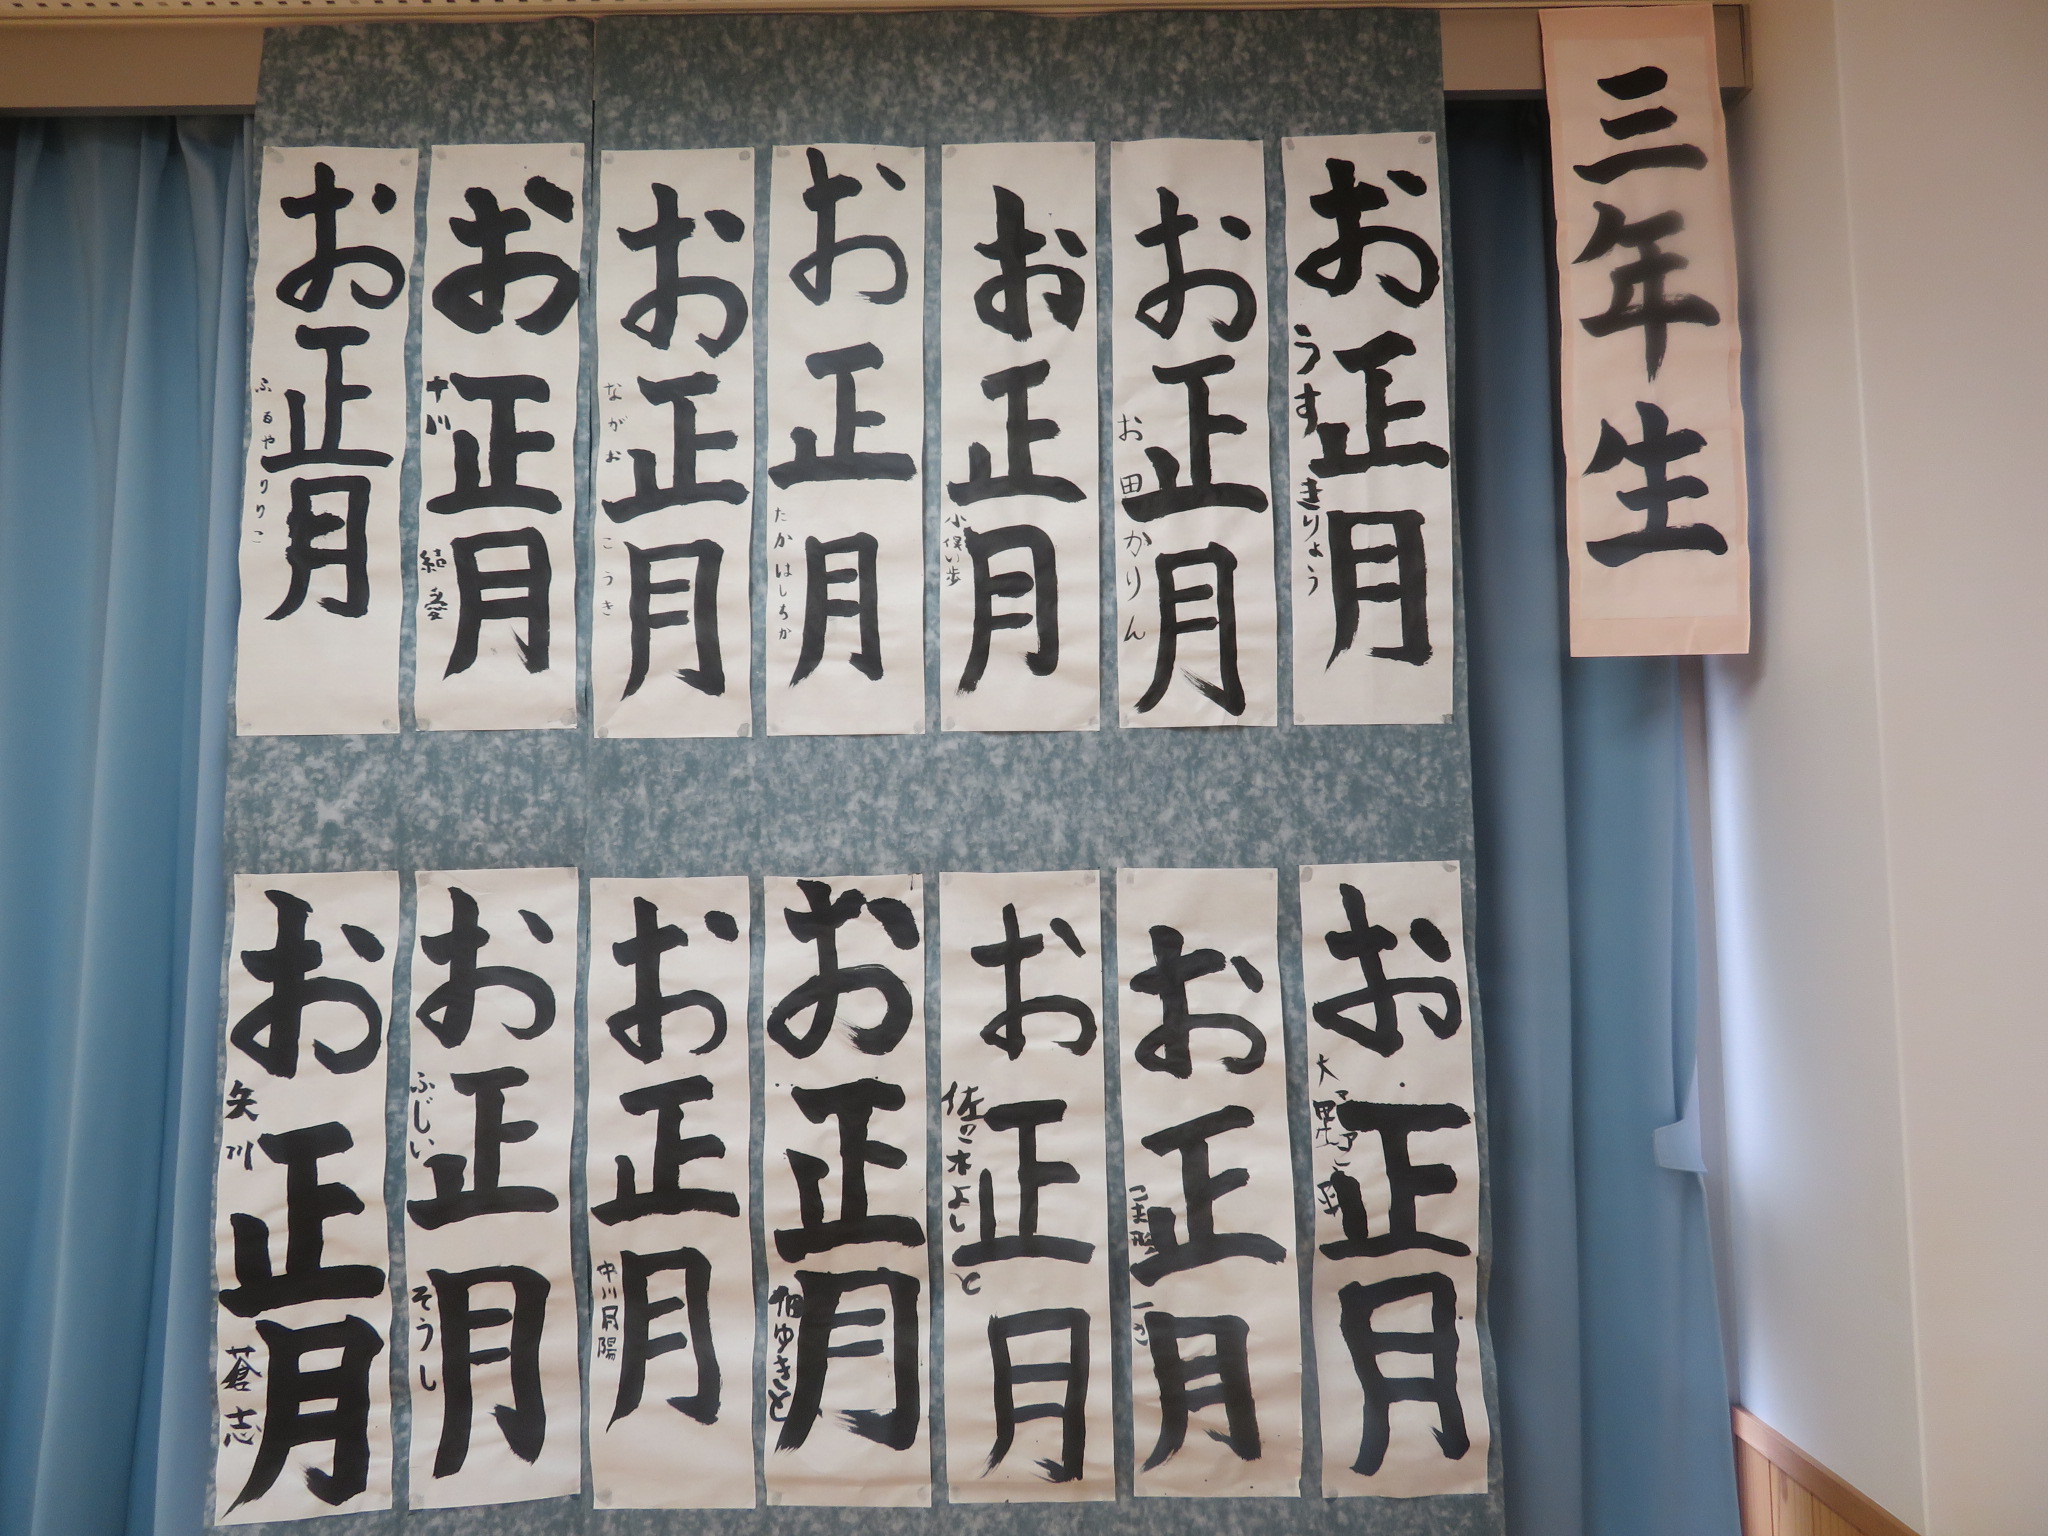 三年生
お正月
うすきりょう
お正月
お田かりん
お正月
お正月
たかはしちか
お正月
ながおこうき
お正月
十川 結愛
お正月
ふるやりりこ
お正月
大野
お正月
お正月
佐々木よしと
お正月
畑ゆきと
お正月
中川月陽
お正月
ふじいそうし
お正月
矢川 蒼志
お正月